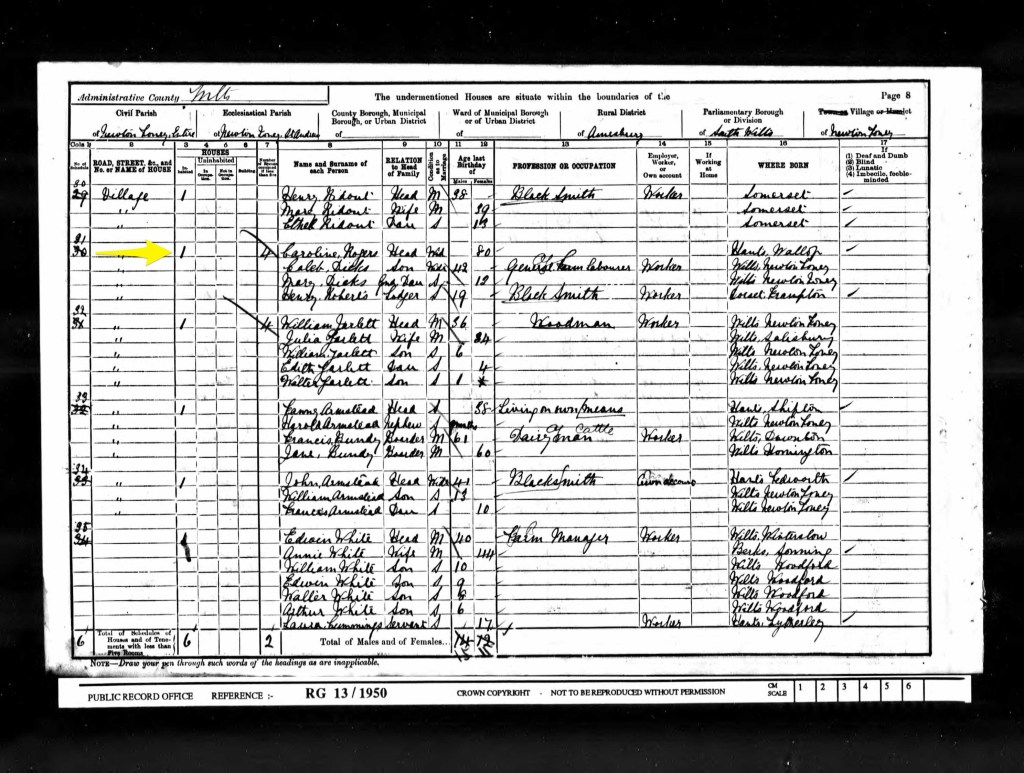 Administrative County Wilts
The undermentioned Houses are situate within the boundaries of the
Page 8
Civil Parish
of Newton Toney, Entire
Ecclesiastical Parish
of Newton Toney, St Andrew
County Borough, Municipal Borough, or Urban District
of
Ward of Municipal Borough or of Urban District
of
Rural District
of Amesbury
Parliamentary Borough or Division
of South Wilts
Towns or Village or Hamlet
of Newton Toney
Cols 1 2 3 4 5 6 7 8 9 10 11 12 13 14 15 16 17
No. of Schedule
ROAD, STREET, &c., and No. or NAME of HOUSE
HOUSES
Inhabited
Uninhabited
In Occupation
Not in Occupation
Building
Number of Rooms occupied if less than five
Name and Surname of each Person
RELATION to Head of Family
Condition as to Marriage
Age last Birthday of
Males Females
PROFESSION OR OCCUPATION
Employer, Worker, or Own account
If Working at Home
WHERE BORN
If
(1) Deaf and Dumb
(2) Blind
(3) Lunatic
(4) Imbecile, feeble-minded
30 29 Village 1 Henry Ridout Head M 38 Black Smith Worker Somerset
" Wife M 39 Somerset
" Ethel Ridout Dau S 13 Somerset
31 30 " 1 4 Caroline Rogers Head Wid 80 Hants, Wallop
" Caleb Dicks Son 42 General Farm labourer Worker Wilts Newton Toney
" Mary Dicks Gnd Dau S 12 Wilts Newton Toney
" Henry Roberts Lodger S 19 Black Smith Worker Dorset Frampton
32 31 " 1 4 William Jarlett Head M 36 Woodman Worker Wilts Newton Toney
" Julia Jarlett Wife M 34 Wilts, Salisbury
" William Jarlett Son S 6 Wilts Newton Toney
" Edith Jarlett Dau S 4 Wilts Newton Toney
" Walter Jarlett Son S 1 Wilts Newton Toney
33 32 " 1 Fanny Armstead Head S 38 Living on own means Hants, Shipton
" Harold Armstead Nephew S Wilts Newton Toney
" Francis Bundy Boarder M 61 Dairyman Cattle Worker Wilts, Downton
" Jane Bundy Boarder M 60 Wilts Homington
34 33 " 1 John Armstead Head Wid 41 Black Smith Own account Hants Tedworth
" William Armstead Son S 13 Wilts Newton Toney
" Frances Armstead Dau S 10 Wilts Newton Toney
35 34 " 1 Edwin White Head M 40 Farm Manager Worker Wilts Winterslow
" Annie White Wife M 44 Berks, Sonning
" William White Son S 10 Wilts Woodford
" Edwin White Son S 9 Wilts Woodford
" Walter White Son S 8 Wilts Woodford
" Arthur White Son S 6 Wilts Woodford
" Laura Servant S 17 Worker Hants
6 Total of Schedules of Houses and of Tenements with less than Five Rooms 6 2 Total of Males and of Females...
NOTE—Draw your pen through such words of the headings as are inapplicable.
PUBLIC RECORD OFFICE REFERENCE :- RG 13/1950 CROWN COPYRIGHT - NOT TO BE REPRODUCED WITHOUT PERMISSION CM SCALE 1 2 3 4 5 6